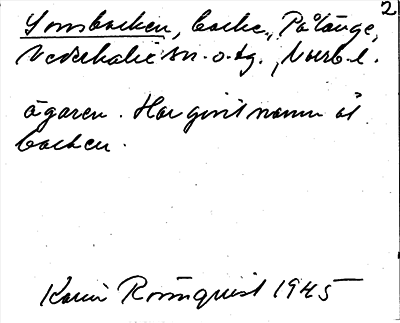 2
Jonsbacken, backe, Pålänge,
Nederkalix sn. o. tg., Norrb. l.
ägaren. Har givit namn åt
backen.
Karin Rönnquist 1945